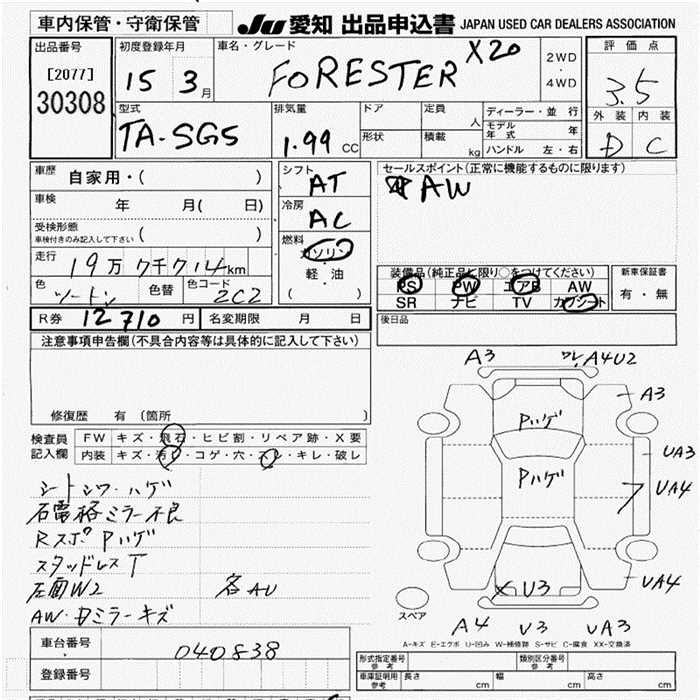 車内保管・守衛保管
JU 愛知 出品申込書 JAPAN USED CAR DEALERS ASSOCIATION
出品番号
[2077]
30308
初度登録年月
15 3月
車名・グレード
FORESTER X20
2WD
・
4WD
評価点
3.5
外装 内装
D C
型式
TA-SG5
排気量
1.99 CC
ドア
形状
定員 人
積載 kg
ディーラー・並行
モデル年式 年
ハンドル 左・右
車歴 自家用・( )
車検 年 月( 日)
受検形態
車検付きのみ記入して下さい ( )
走行
19万7千7.14km
色
ツートン
色替
色コード
2C2
シフト
AT
冷房
AC
燃料
ガソリン
・
軽・油
( )
セールスポイント(正常に機能するものに限ります)
AW
装備品(純正品に限り○をつけてください)
PS PW エアB AW
SR ナビ TV カワシート
新車保証書
有・無
R券 12710 円
名変期限 月 日
後日品
注意事項申告欄(不具合内容等は具体的に記入して下さい)
修復歴 有 (箇所 )
検査員
記入欄
FW キズ・飛石・ヒビ割・リペア跡・X要
内装 キズ・汚れ・コゲ・穴・スレ・キレ・破レ
シートシワ・ハゲ
石電格ミラー不良
Rスポ Pハゲ
スタッドレスT
左面W2 各AU
AW・ミラーキズ
A3
ワレ,A4U2
A3
Pハゲ
Pハゲ
UA3
UA4
UA4
X U3
A4 U3 UA3
スペア
A-キズ E-エクボ U-凹み W-補修跡 S-サビ C-腐食 XX-交換済
車台番号 040838
登録番号
形式指定番号
参考
類別区分番号
参考
車庫証明用
参考
長さ cm 幅 cm 高さ cm